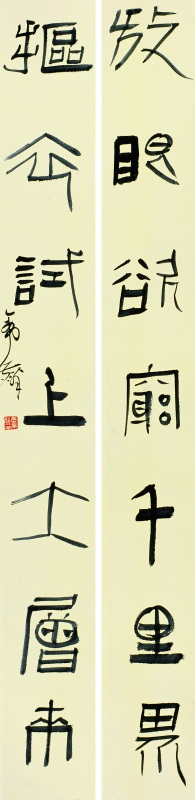 放眼欲窮千里界
摳衣試上層来